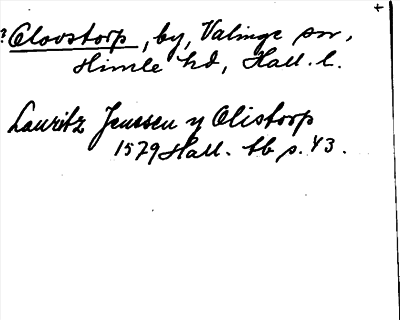 ? Olovstorp, by, Valinge sn,
Himle hd, Hall. l.
Lauritz Jenssen y Olistorp
1579 Hall. tb s. 43.